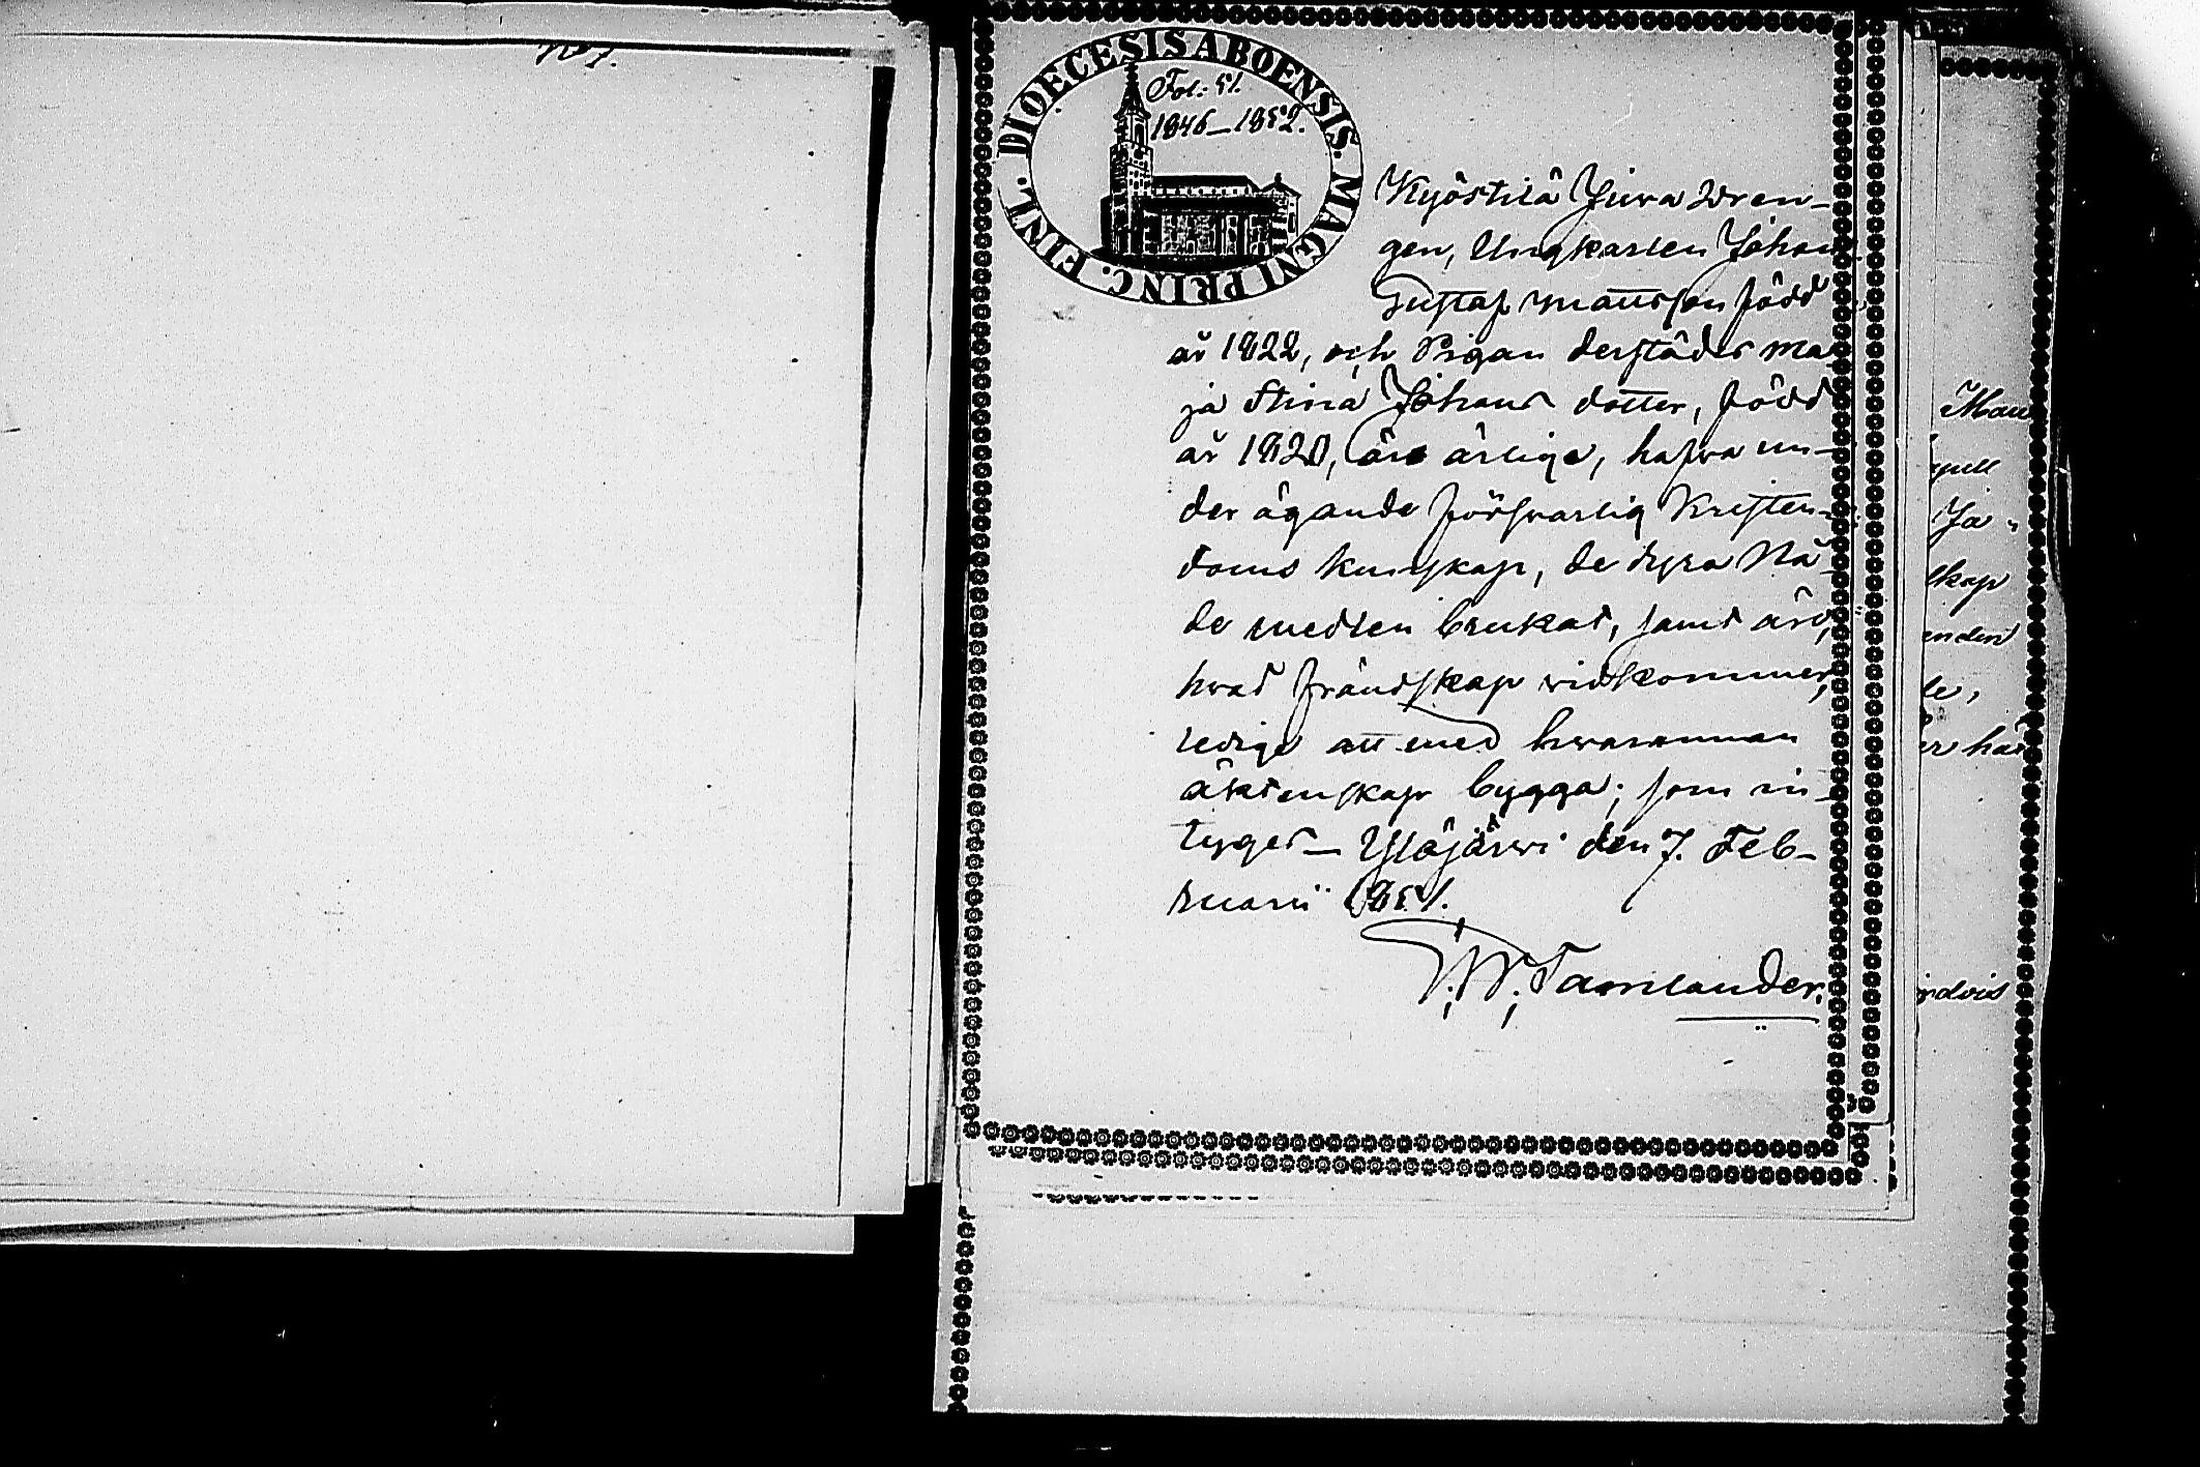 DIOECESIS ABOENSIS. MAGNI PRINC. FINL.
Fol: 51.
1846–1852.
Kyöstilä Juva Dren-
gen, Ungkarlen Johan
Gustaf Mattsson född
år 1822, och Pigan derstädes Ma-
ja Stina Johans dotter, född
år 1820, äro ärlige, hafva un-
der ägande försvarlig Kristen-
doms kunskap, de dyra Nå-
de medlen brukat, samt äro,
hvad frändskap vidkommer,
ledige att med hvarannan
äktenskap bygga; som in-
tyges_ Ylöjärvi den 7. Feb-
ruarii 1851.
Tamlander.
Man
skap
enden
er har